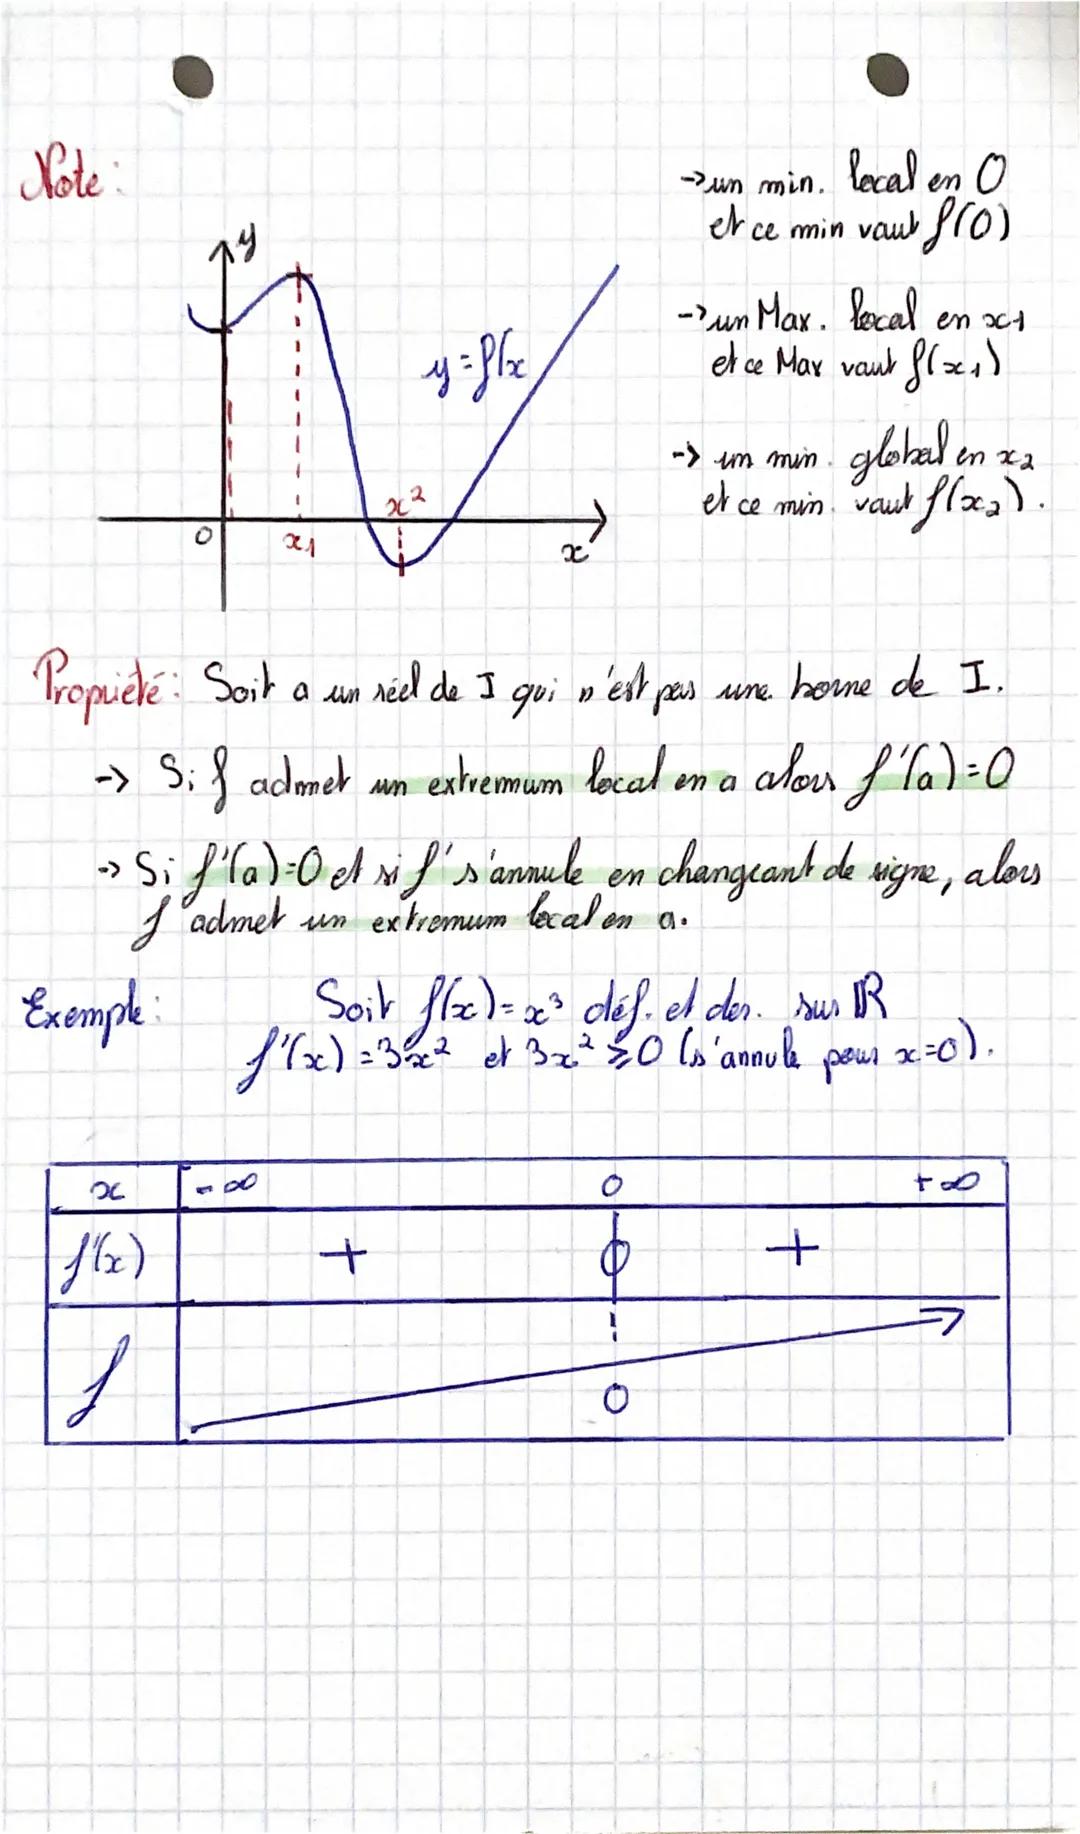 Note:
y
y=f(x
x2
0
x1
x
->un min. local en 0
et ce min vaut f(0)
->un Max. local en x1
et ce Max vaut f(x1)
-> un min. global en x2
et ce min. vaut f(x2).
Propriété: Soit a un réel de I qui n'est pas une borne de I.
-> Si f admet un extremum local en a alors f'(a)=0
-> Si f'(a)=0 et si f' s'annule en changeant de signe, alors
f admet un extremum local en a.
Exemple: Soit f(x)=x³ déf. et der. sur ℝ
f'(x) =3x² et 3x²⩾0 (s'annule pour x=0).
x -∞ 0 +∞
f'(x) + 0 +
f 0